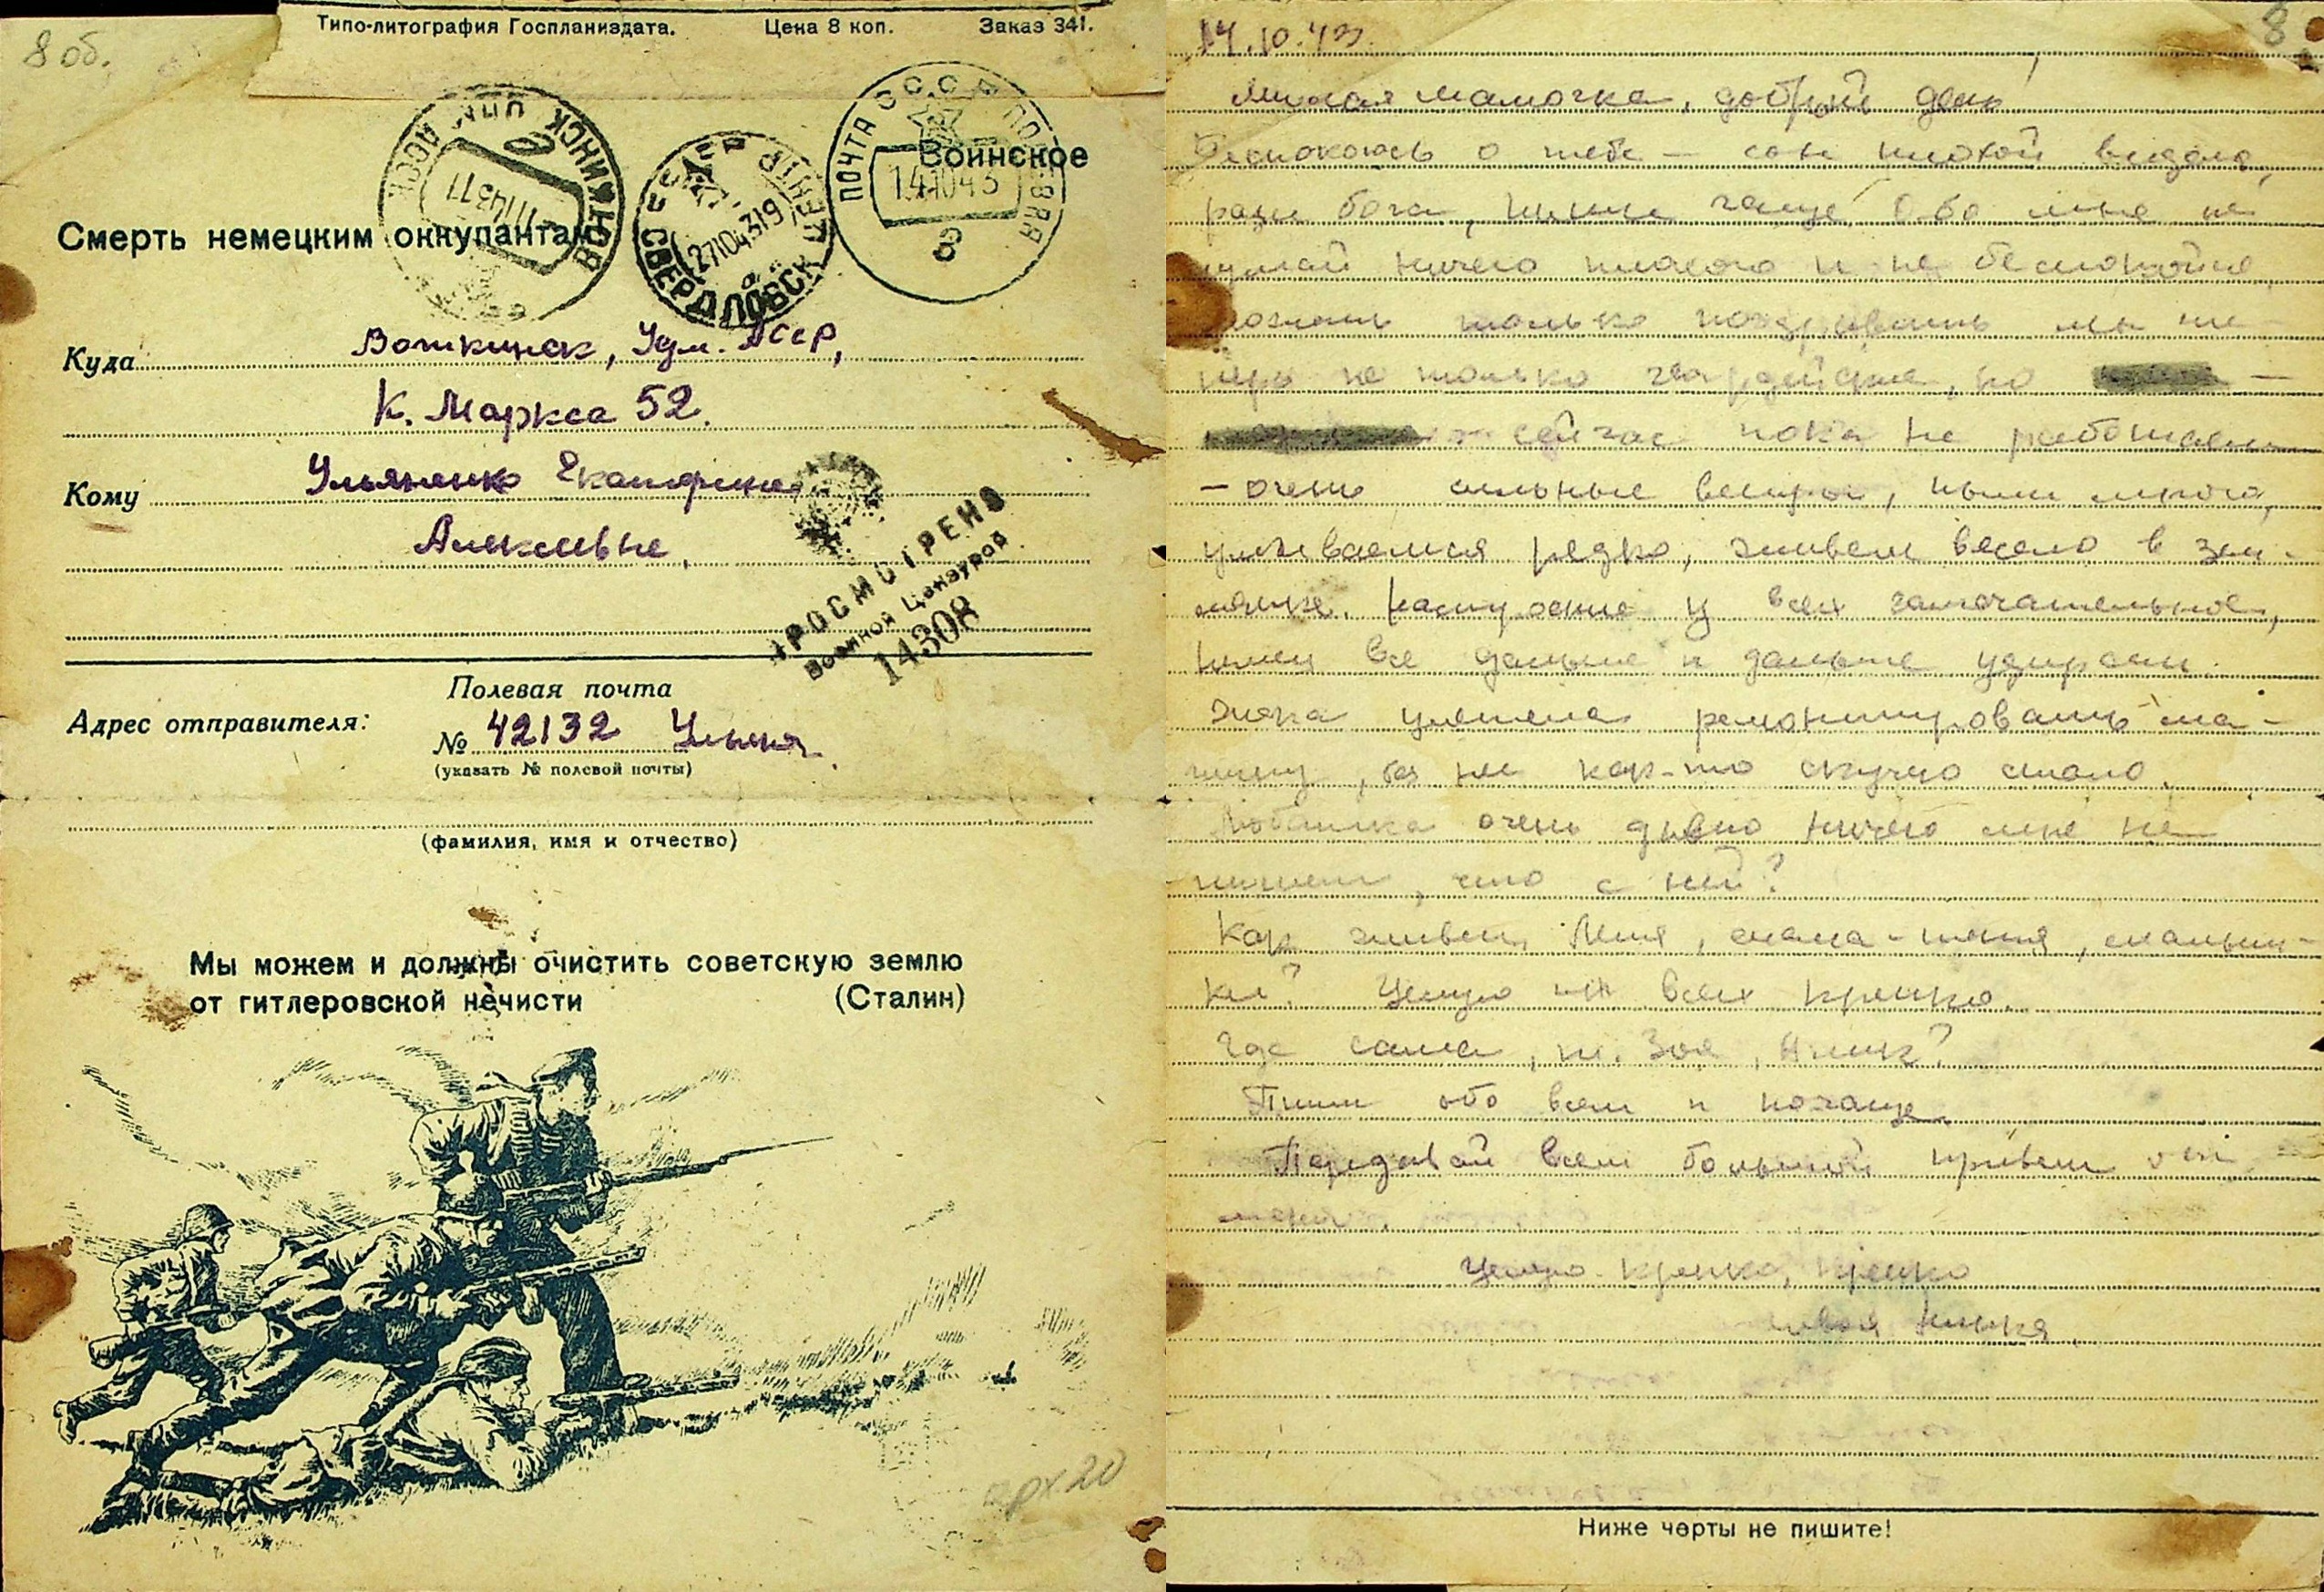 8 об.
Типо-литография Госпланиздата. Цена 8 коп. Заказ 341.
Воинское
ПОЧТА СССР ПОЛЕВАЯ
14 10 43
8
СВЕРДЛОВСК
271043 19
Смерть немецким оккупантам
Куда Воткинск, Удм. АССР,
К. Маркса 52.
Кому Ульяненко Екатерине
Алексеевне,
ПРОСМОТРЕНО
Военной Цензурой
14308
Полевая почта
Адрес отправителя:
№ 42132 Ульян.
(указать № полевой почты)
(фамилия, имя и отчество)
Мы можем и должны очистить советскую землю
от гитлеровской нечисти (Сталин)
арх 20
8
14.10.43.
Милая мамочка, добрый день
Беспокоюсь о тебе – сон плохой видела,
ради бога, пиши чаще. Обо мне не
думай ничего плохого и не беспокойся,
можешь только поздравить мы те-
перь не только гвардейские, но
сейчас пока не работаем
– очень сильные ветры, пыли много,
умываемся редко, живем весело в зем-
лянке. настроение у всех замечательное,
немец все дальше и дальше удирает.
улетела ремонтировать ма-
шину, без нее как-то скучно стало.
Любашка очень давно ничего мне не
пишет, что с ней?
Как живет Лиля, мама-тетя, малыш-
ка? Целую их всех крепко.
Где Саша, т. Зоя, Алик?
Пиши обо всем и почаще
Передавай всем большой привет от
меня.
Целую крепко, крепко
твоя Нинка.
Ниже черты не пишите!